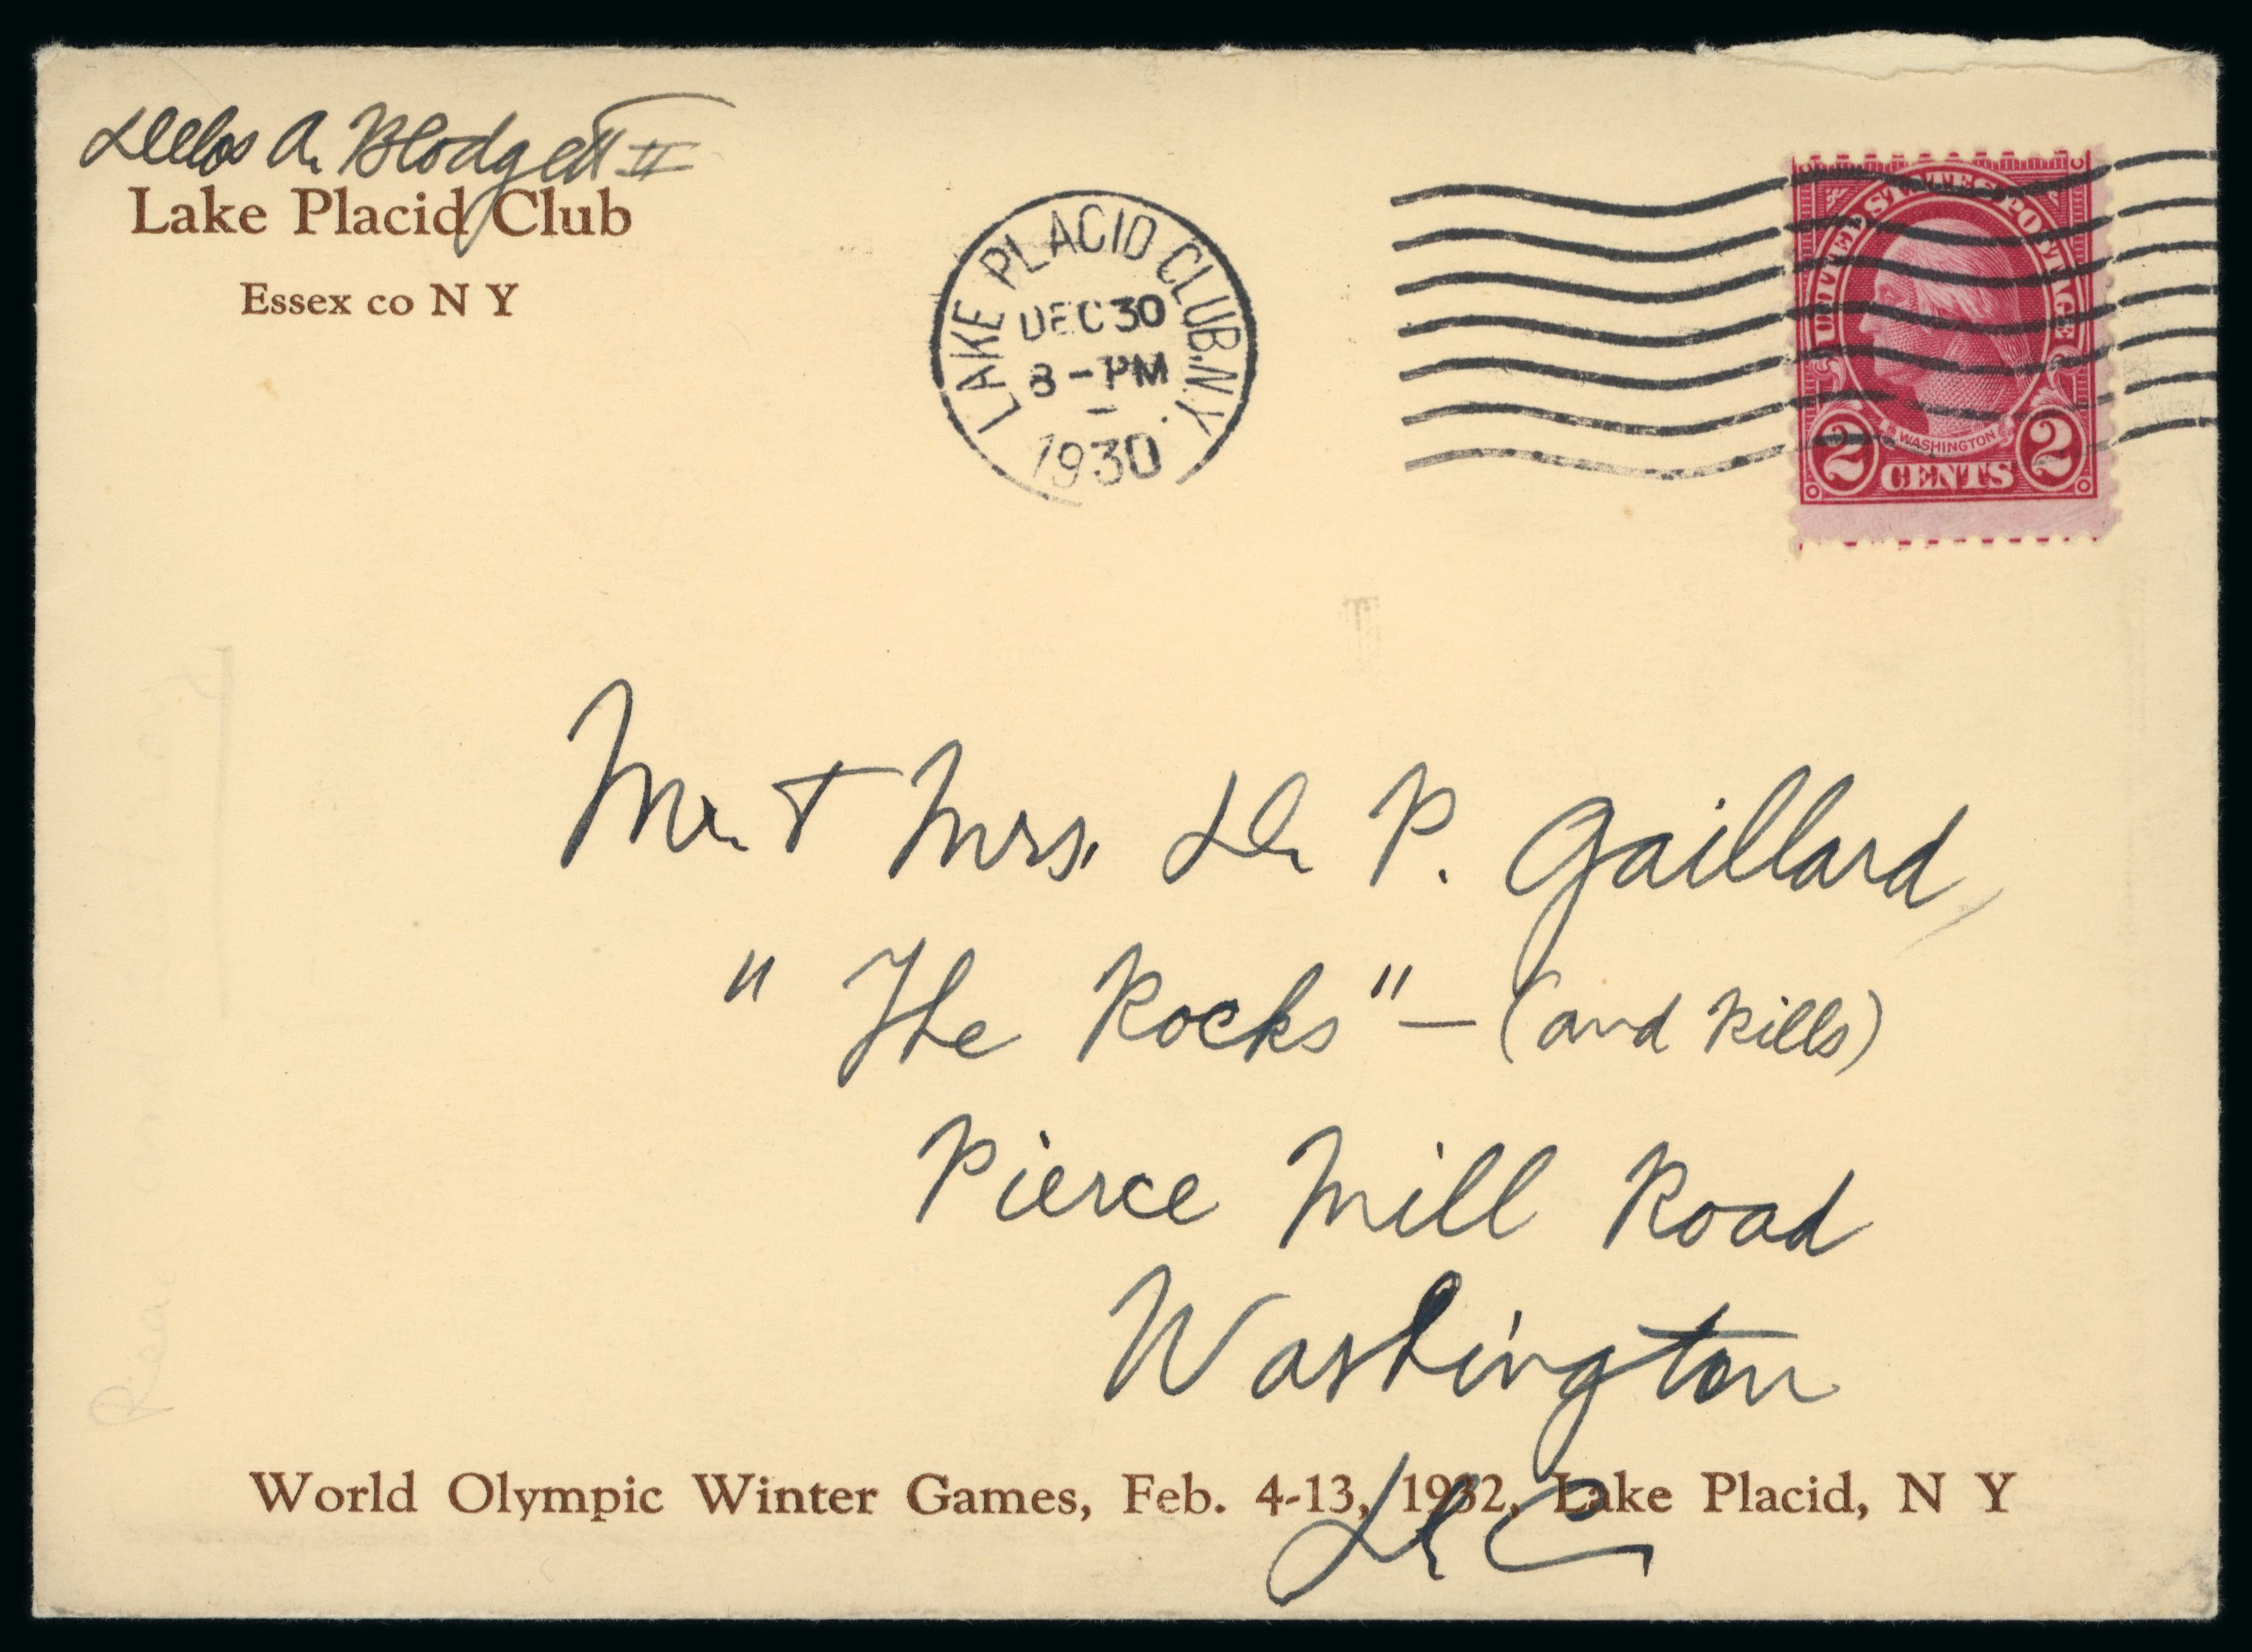 Delos A. Blodgett II
Lake Placid Club
Essex co N Y
LAKE PLACID CLUB, N.Y.
DEC 30
8 - PM
1930
UNITED STATES POSTAGE
WASHINGTON
2 CENTS 2
Mr. + Mrs. D. P. Gaillard,
"The Rocks" — (and Rills)
Pierce Mill Road
Washington
D C
World Olympic Winter Games, Feb. 4-13, 1932, Lake Placid, N Y